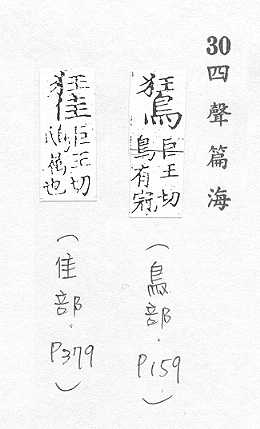 30四聲篇海
鵟巨王切
鳥有冠
(鳥部.P159.)
巨王切
也
(佳部.P379)